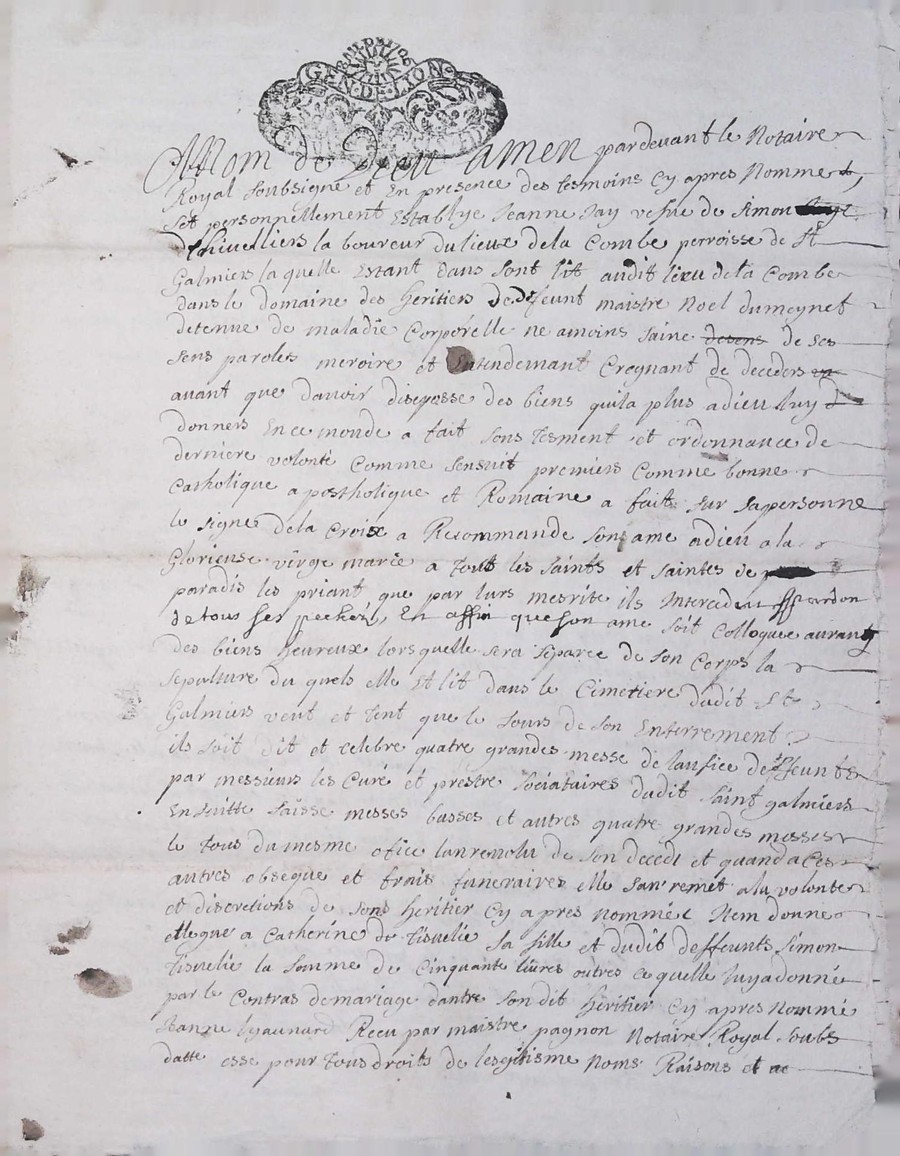 GEN·DE·LION
Nom de Dieu amen pardevant le Notaire
Royal soubsigne et En presence des tesmoins Cy apres Nommet
set personnellement Establye Jeanne Jay vefue de simon
la boureur du lieux dela Combe perroisse de St
Galmiers la quelle Estant dans sont lit audit lieu de la Combe
dans le domaine des heritiers de defeunt maistre Noel dumeynet
detenue de maladie Corporelle ne amoins saine desens de ses
sens paroles meroire et Entendemant Creygnant de deceders
auant que dauoir disposse des biens quila plus adieu luy
donners En ce monde a fait sons tesment et ordonnance de
derniere volonte Comme sensuit premiers Comme bonne
Catholique apostholique et Romaine a fait sur sapersonne
le signe dela Croix a Recommande son ame adieu ala
Glorieuse virge marie a tout les saints et saintes de
paradis les priant que par lurs mesrite ils Intercedent pardon
de tous ses pechez, En affin que son ame soit Colloquee aurant
des biens heureux lors quelle sera separee de son Corps la
sepulture du quels elle Et lit dans le Cimetiere dudit St
Galmiers veut et tent que le Jours de son Enterrement
ils soit dit et celebre quatre grandes messe de lanfice deffeunts
par messieurs les Curé et prestre sociataires dudit saint galmiers
Ensuitte saisse messes basses et autres quatre grandes messes
le tous du mesme ofice lanremolu de son decede et quand a Ces
autres obseque et frais funeraires elle san remet ala volonte
et discretions de sons heritier Cy apres nommée Item donne
et legue a Catherine de tisuelie sa fille et dudit deffeunts simon
tisuelie la somme de Cinquante liures outres ce quelle luy a donné
par le Contras de mariage dantre sondit heritier Cy apres Nommé
Jeanne Receu par maistre pagnon Notaire Royal soubs
datte esse pour tous droits de lesgitisme Noms Raisons et ac